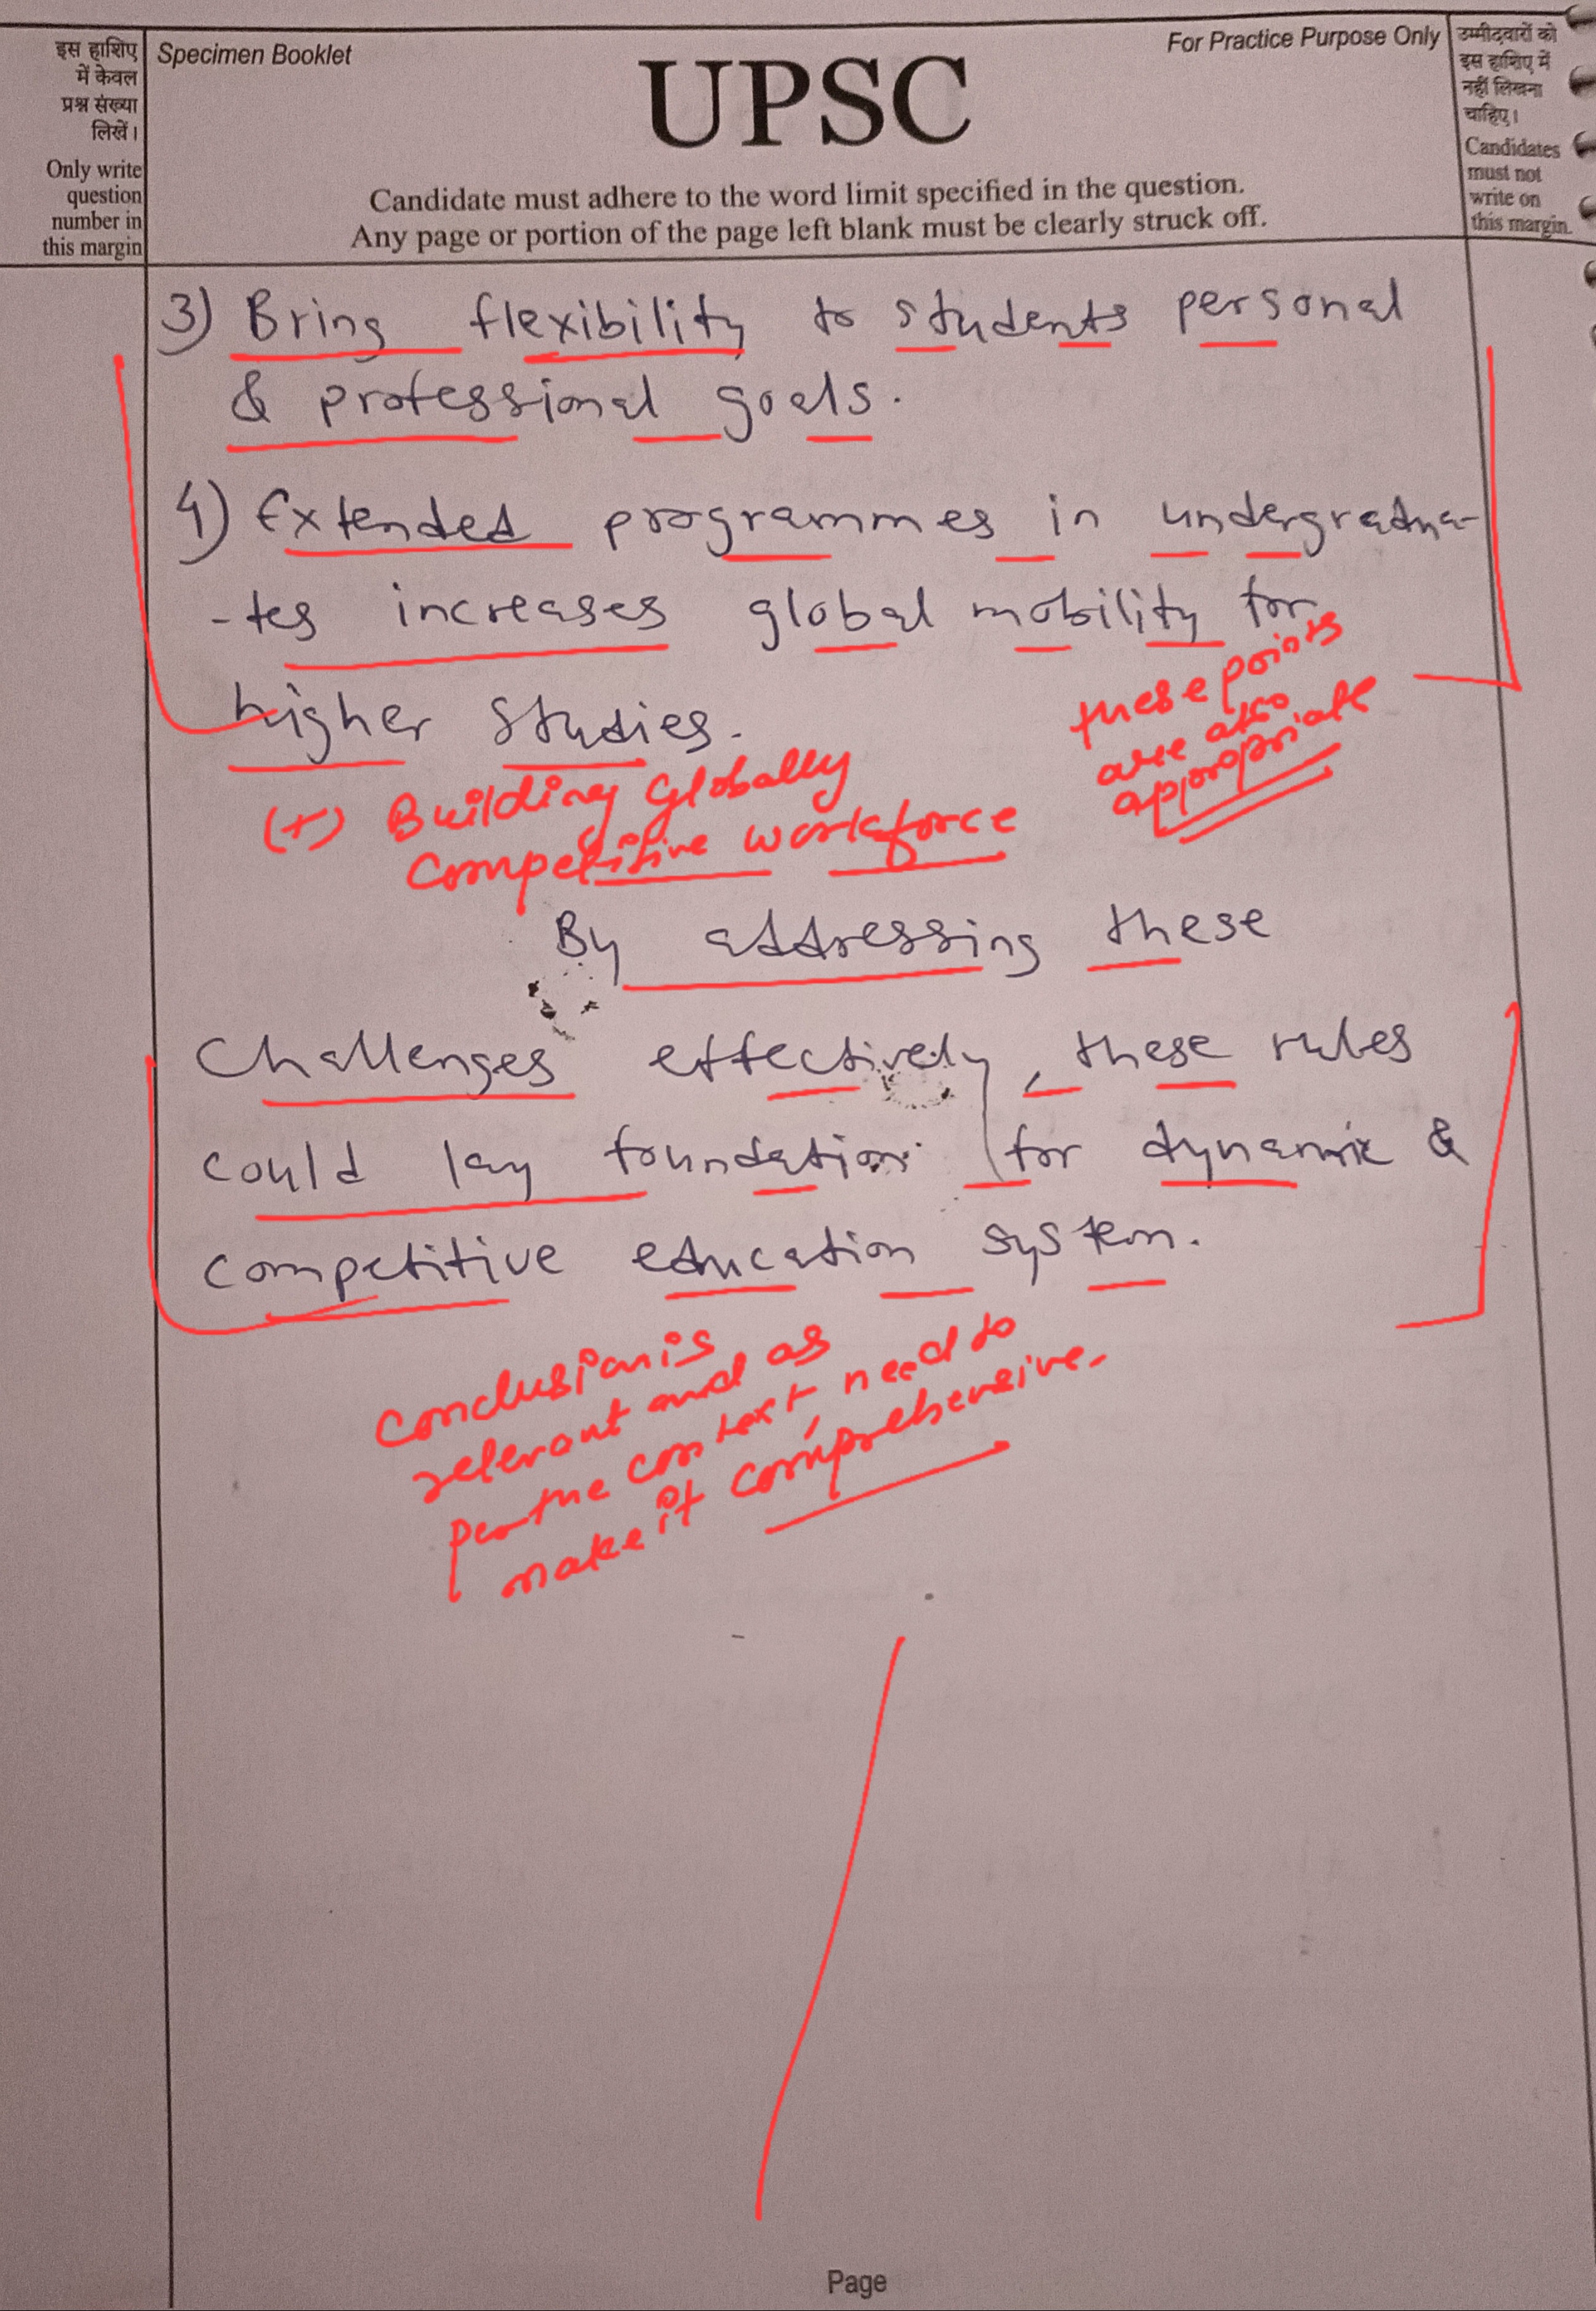 इस हाशिए
में केवल
प्रश्न संख्या
लिखें।
Only write
question
number in
this margin
Specimen Booklet
For Practice Purpose Only
UPSC
Candidate must adhere to the word limit specified in the question.
Any page or portion of the page left blank must be clearly struck off.
उम्मीदवारों को
इस हाशिए में
नहीं लिखना
चाहिए।
Candidates
must not
write on
this margin.
3) Bring flexibility to students personal
& professional goals.
4) Extended programmes in undergradua-
-tes increases global mobility for
higher studies.
these points
are also
appropriate
(+) Building Globally
Competitive workforce
By addressing these
Challenges effectively, these rules
could lay foundation for dynamic &
competitive education system.
Conclusion is
relevant and as
per the context, need to
make it comprehensive.
Page